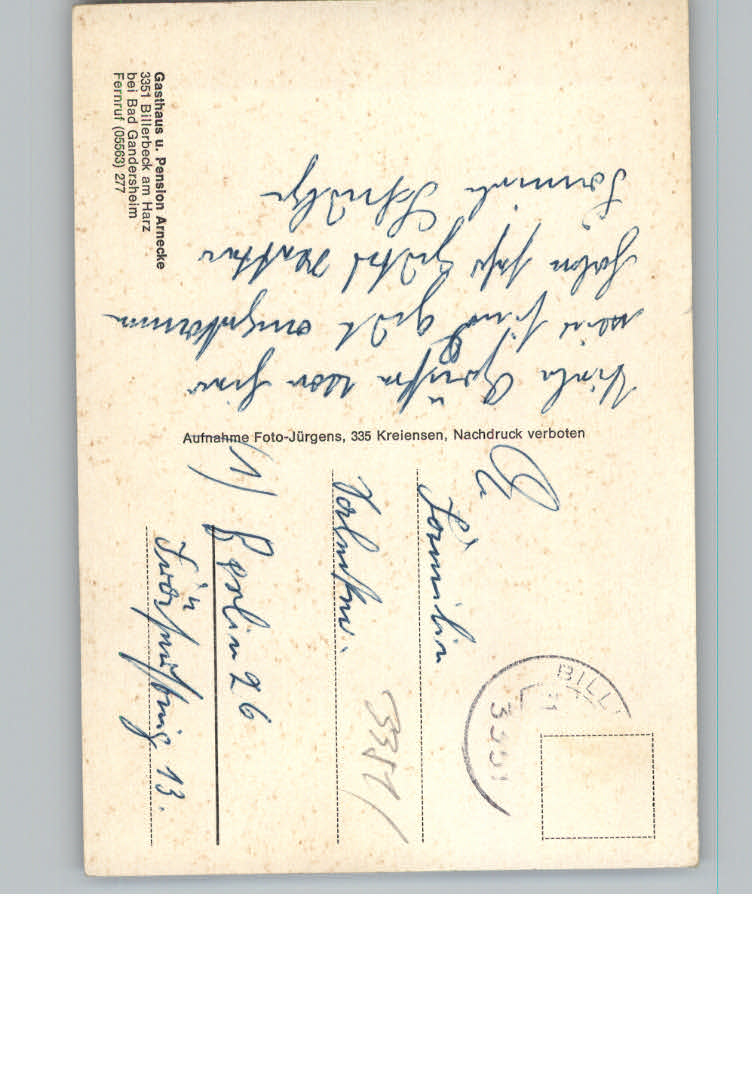 Gasthaus u. Pension Arnecke
3351 Billerbeck am Harz
bei Bad Gandersheim
Fernruf (05563) 277
Viele Grüße von hier
wir sind gut angekommen
haben sehr gutes Wetter
Familie Schulze
Aufnahme Foto-Jürgens, 335 Kreiensen, Nachdruck verboten
Familie
1/ Berlin 26
13.
3351
BILL
3351